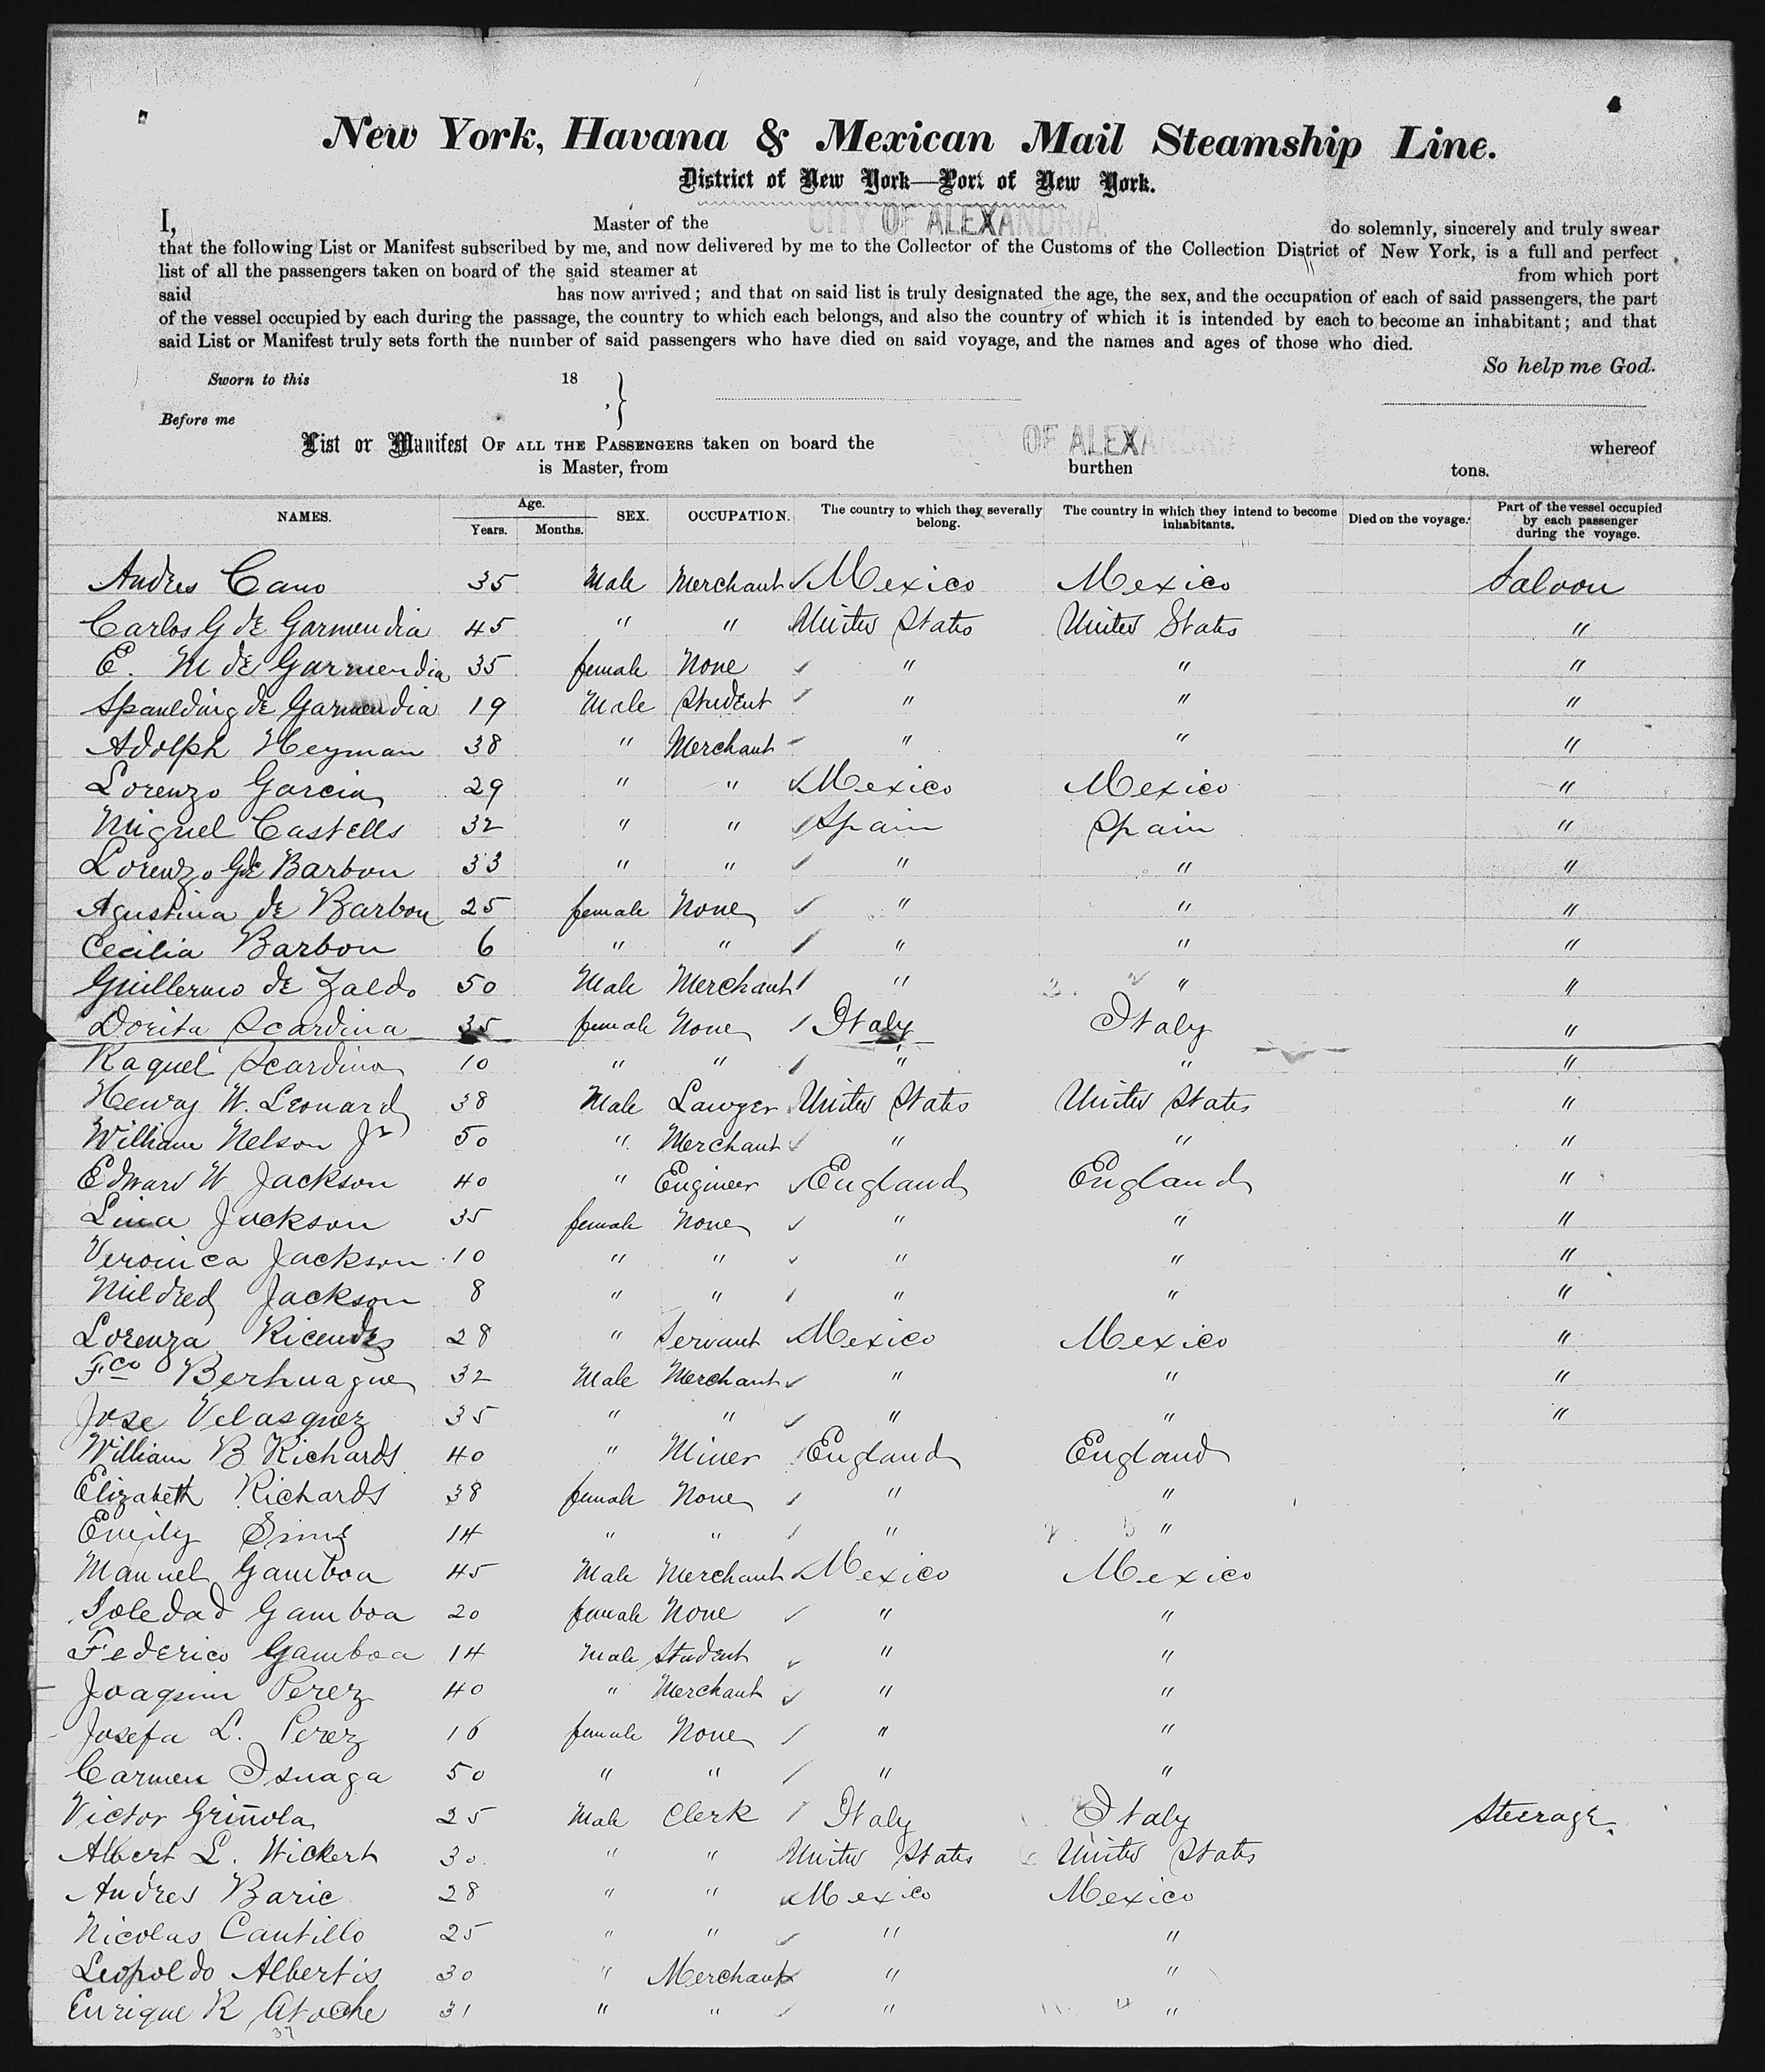 New York, Havana & Mexican Mail Steamship Line.
District of New York—Port of New York.
I, Master of the CITY OF ALEXANDRIA. do solemnly, sincerely and truly swear
that the following List or Manifest subscribed by me, and now delivered by me to the Collector of the Customs of the Collection District of New York, is a full and perfect
list of all the passengers taken on board of the said steamer at from which port
said has now arrived; and that on said list is truly designated the age, the sex, and the occupation of each of said passengers, the part
of the vessel occupied by each during the passage, the country to which each belongs, and also the country of which it is intended by each to become an inhabitant; and that
said List or Manifest truly sets forth the number of said passengers who have died on said voyage, and the names and ages of those who died.
So help me God.
Sworn to this 18
Before me
List or Manifest OF ALL THE PASSENGERS taken on board the CITY OF ALEXANDRIA whereof
is Master, from burthen tons.
NAMES. Age. Years. Months. SEX. OCCUPATION. The country to which they severally belong. The country in which they intend to become inhabitants. Died on the voyage. Part of the vessel occupied by each passenger during the voyage.
Andres Cano 35 Male Merchant Mexico Mexico Saloon
Carlos G de Garmendia 45 " " United States United States "
E. M de Garmendia 35 female None " " "
Spaulding de Garmendia 19 Male Student " " "
Adolph Heyman 38 " Merchant " " "
Lorenzo Garcia 29 " " Mexico Mexico "
Miguel Castells 32 " " Spain Spain "
Lorenzo G de Barbon 33 " " " " "
Agustina de Barbon 25 female None " " "
Cecilia Barbon 6 " " " " "
Guillermo de Zaldo 50 Male Merchant " " "
Dorita Scardina 35 female None Italy Italy "
Raquel Scardina 10 " " " " "
Henry W. Leonard 38 Male Lawyer United States United States "
William Nelson Jr 50 " Merchant " " "
Edward W Jackson 40 " Engineer England England "
Lina Jackson 35 female None " " "
Veronica Jackson 10 " " " " "
Mildred Jackson 8 " " " " "
Lorenza 28 " Servant Mexico Mexico "
Fco 32 Male Merchant " " "
Jose Velasquez 35 " " " " "
William B Richards 40 " Miner England England
Elizabeth Richards 38 female None " "
Emily Sims 14 " " " "
Manuel Gamboa 45 Male Merchant Mexico Mexico
Soledad Gamboa 20 female None " "
Federico Gamboa 14 Male Student " "
Joaquin Perez 40 " Merchant " "
Josefa L. Perez 16 female None " "
Carmen Isnaga 50 " " " "
Victor Griñola 25 Male Clerk Italy Italy Steerage.
Albert L. Wickert 30 " " United States United States
Andres Baric 28 " " Mexico Mexico
Nicolas Cantillo 25 " " " "
Leopoldo Albertis 30 " Merchant " "
Enrique R Atoche 31 " " " "
37